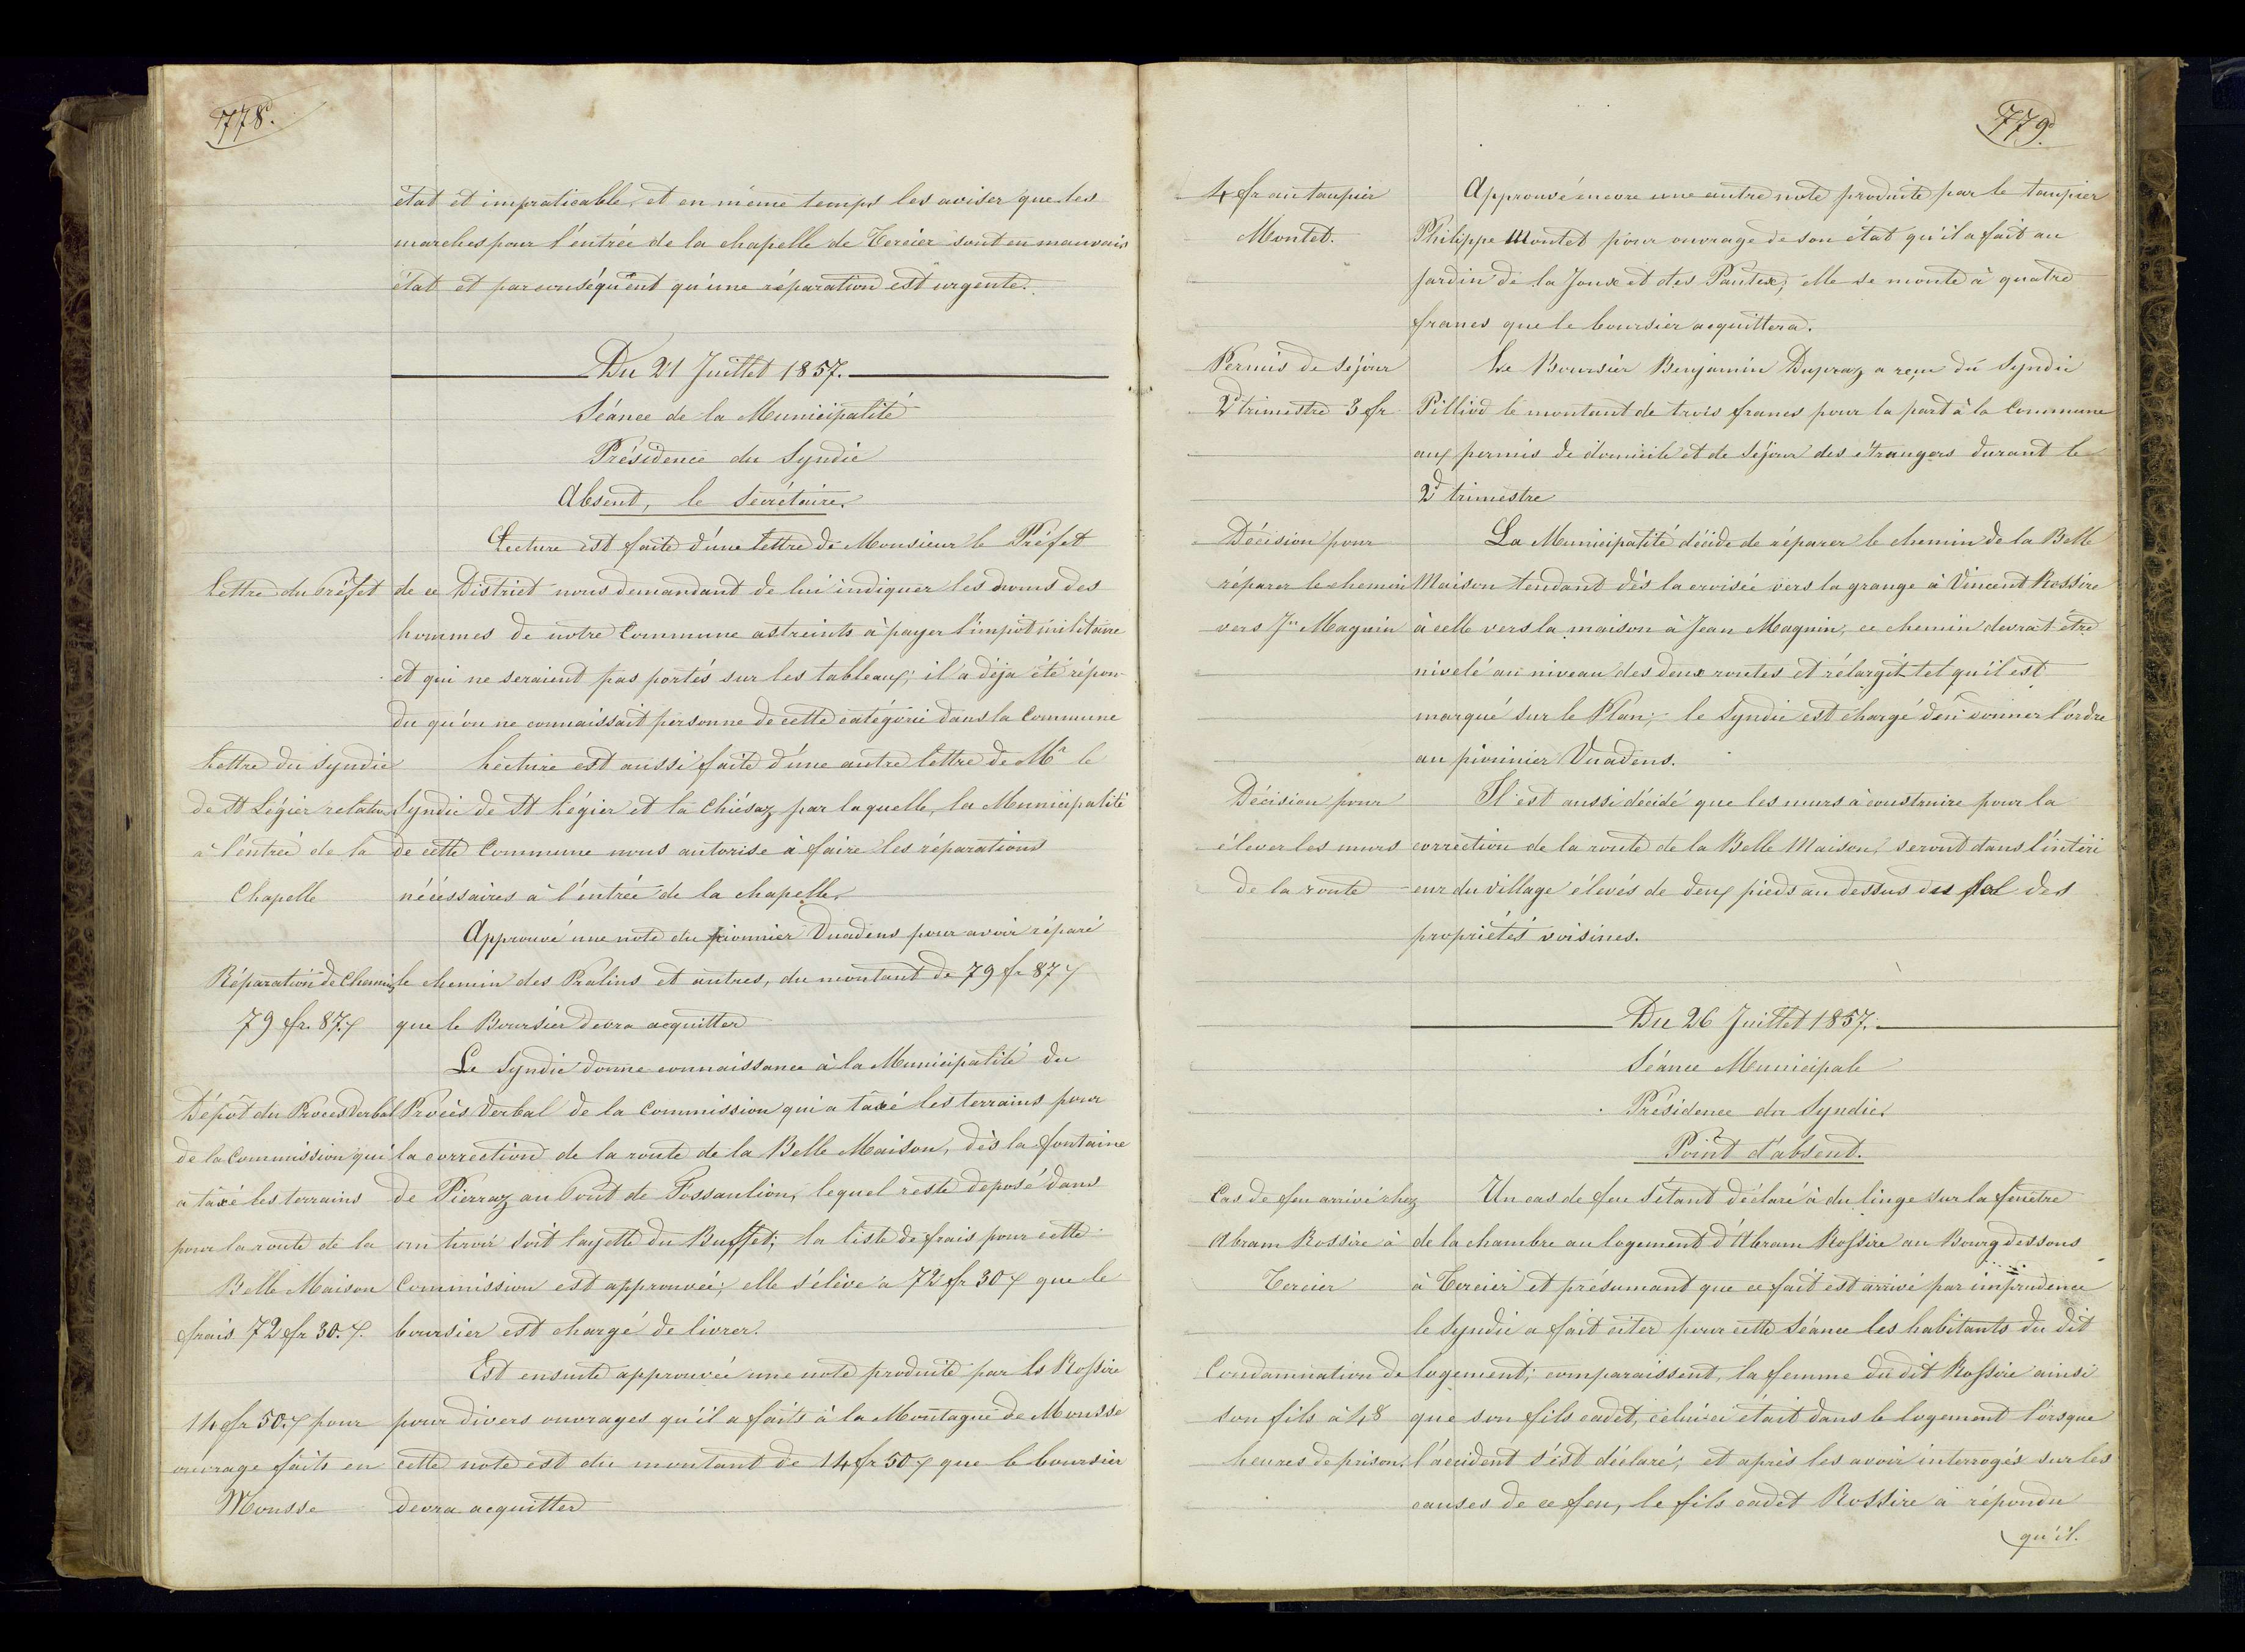 778.
état et impraticable, et en même temps les aviser que les
marches pour l'entrée de la chapelle de Tercier sont en mauvais
état et par conséquent qu'une réparation est urgente.
Du 21 Juillet 1857.
Séance de la Municipalité
Présidence du Syndic
Absent, le secrétaire.
Lecture est faite d'une lettre de Monsieur le Préfet
Lettre du Préfet
de ce District nous demandant de lui indiquer les noms des
hommes de notre Commune astreints à payer l'impôt militaire
et qui ne seraient pas portés sur les tableaux; il a déja été répon-
du qu'on ne connaissait personne de cette catégorie dans la Commune
Lettre du Syndic
Lecture est aussi faite d'une autre lettre de Mr le
de St Légier relative
Syndic de St Légier et la Chiésaz par laquelle, la Municipalité
à l'entrée de la
de cette Commune nous autorise à faire les réparations
Chapelle
nécéssaires à l'entrée de la chapelle.
Approuvé une note du pionnier Vuadens pour avoir réparé
Réparation de Chemins
le chemin des Pralins et autres, du montant de 79 fr 87
79 fr. 87.
que le Boursier devra acquitter
Le Syndic donne connaissance à la Municipalité du
Dépôt du Procès Verbal
Procès Verbal de la Commission qui a taxé les terrains pour
de la Commission qui
la correction de la route de la Belle Maison, dès la fontaine
a taxé les terrains
de Pierraz au Pont de Fossaulion, lequel reste déposé dans
pour la route de la
un tiroir soit layette du Buffet; la liste de frais pour cette
Belle Maison
Commission est approuvée; elle s'élève à 72 fr 30 que le
frais 72 fr 30.
boursier est chargé de livrer.
Est ensuite approuvée une note produite par Ls Rossire
14 fr 50. pour
pour divers ouvrages qu'il a faits à la Montagne de Mousse
ouvrage faits en
cette note est du montant de 14 fr 50 que le boursier
Mousse
devra acquitter
779.
4 fr au taupier
Approuvé encore une autre note produite par le taupier
Montet.
Philippe Montet pour ouvrage de son état qu'il a fait au
jardin de la Joux et des Pautex; elle se monte à quatre
francs que le boursier acquittera.
Permis de séjour
Le Boursier Benjamin Dupraz a reçu du Syndic
2d trimestre 3 fr
Pilliod le montant de trois francs pour la part à la Commune
aux permis de domicile et de séjour des étrangers durant le
2d trimestre
Décision pour
La Municipalité décide de réparer le chemin de la Belle
réparer le chemin
Maison tendant dès la croisée vers la grange à Vincent Rossire
vers Jn Magnin
à celle vers la maison à Jean Magnin, ce chemin devra-t-être
nivelé au niveau des deux routes et rélargit tel qu'il est
marqué sur le Plan; le Syndic est chargé d'en donner l'ordre
au pionnier Vuadens.
Décision pour
Il est aussi décidé que les murs à construire pour la
élever les murs
correction de la route de la Belle Maison, seront dans l'intéri
de la route
eur du village élevés de deux pieds au dessus du sol des
propriétés voisines.
Du 26 Juillet 1857.
Séance Municipale
Présidence du Syndic.
Point d'absent.
Cas de feu arrivé chez
Un cas de feu s'étant déclaré à du linge sur la fenêtre
Abram Rossire à
de la chambre au logement d'Abram Rossire au Bourg dessous
Tercier
à Tercier et présumant que ce fait est arrivé par imprudence
le Syndic a fait citer pour cette Séance les habitants du dit
Condamnation de
logement; comparaissent, la femme du dit Rossire ainsi
son fils à 48
que son fils cadet, celui-ci était dans le logement lorsque
heures de prison.
l'accident s'est déclaré; et après les avoir interrogés sur les
causes de ce feu, le fils cadet Rossire à répondu
qu'il.